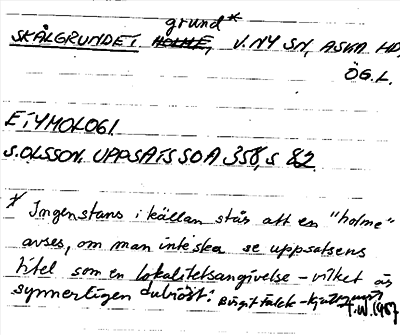 grund*
SKÅLGRUNDET HOLME, V. NY SN, ASKA HD,
ÖG. L.
ETYMOLOGI
S. OLSSON. UPPSATS SOA 358, S 82
* Ingenstans i källan står att en "holme"
avses, om man inte ska se uppsatsens
titel som en lokalitetsangivelse – vilket är
synnerligen dubiöst. Birgit Falck-Kjällquist